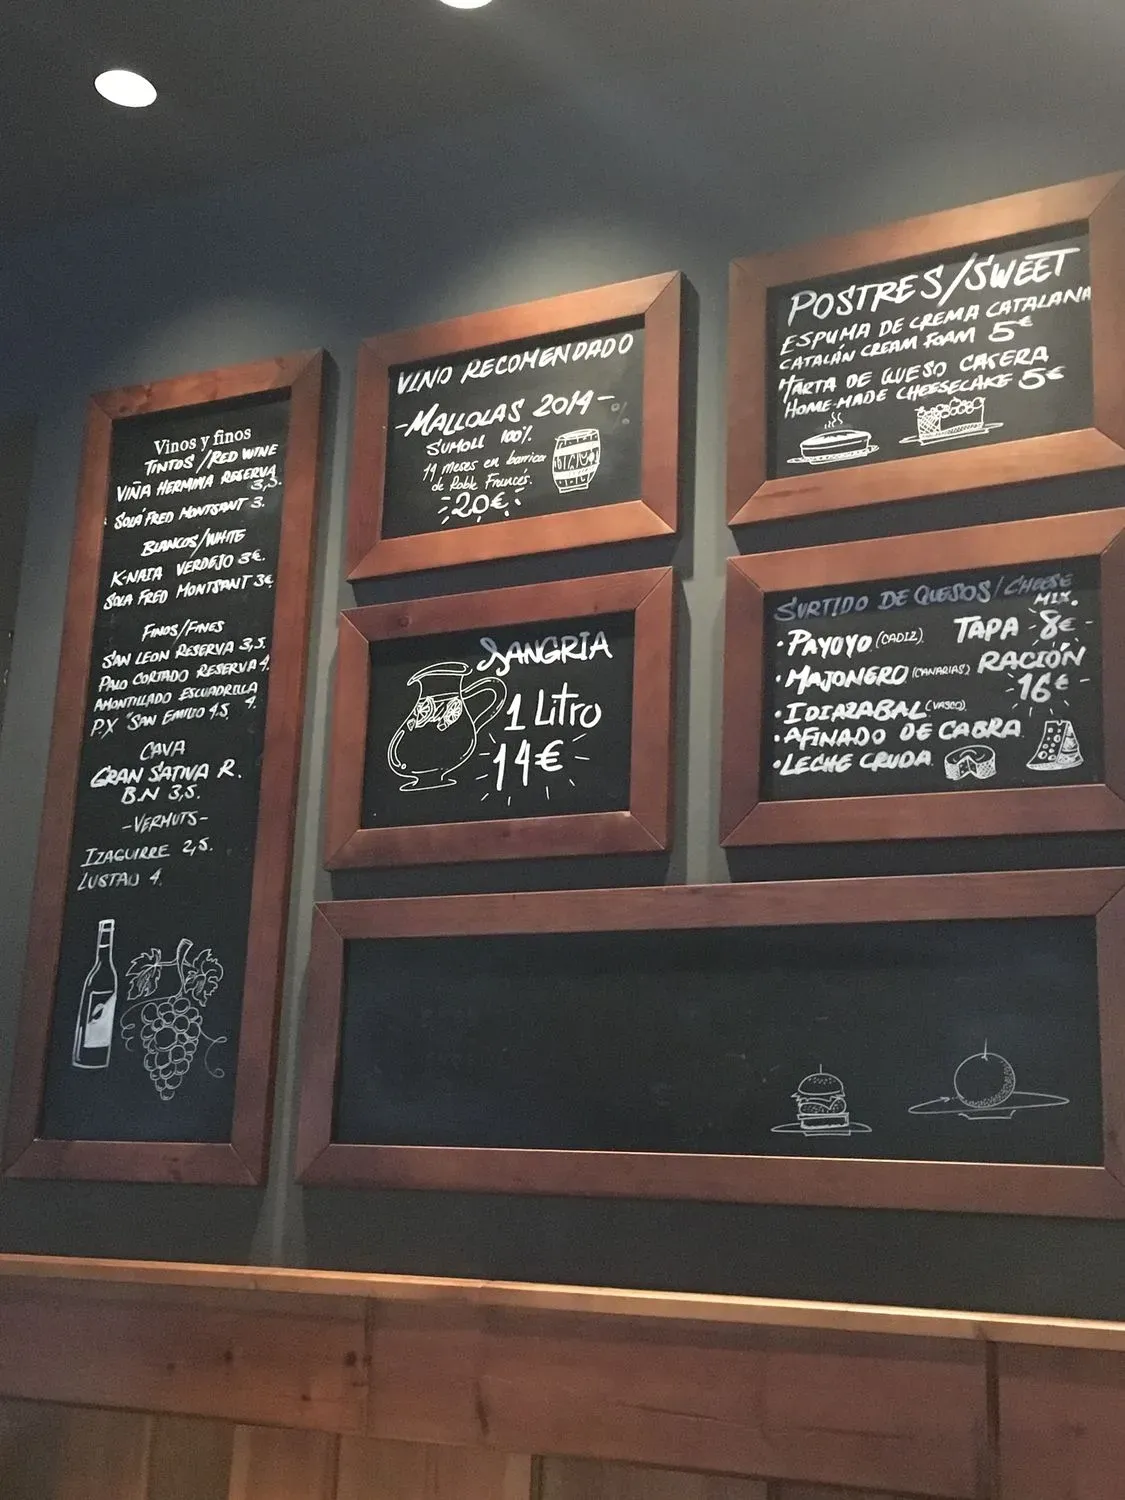 Vinos y finos
TINTOS / RED WINE
VIÑA HERMINIA RESERVA
3,5.
SOLÁ FRED MONTSANT 3.
BLANCOS/WHITE
K-NAIA VERDEJO 3€.
SOLA FRED MONTSANT 3€
FINOS/FINES
SAN LEON RESERVA 3,5.
PALO CORTADO RESERVA 4.
AMONTILLADO ESCUADRILLA
4.
P.X SAN EMILIO 4.5
CAVA
GRAN SATIVA R.
B.N 3,5.
-VERMUTS-
IZAGUIRRE 2,5.
LUSTAU 4.
VINO RECOMENDADO
-MALLOLAS 2014-
SUMOLL 100%
11 meses en barrica
de Roble Francés.
20€
SANGRIA
1 Litro
14€
POSTRES/SWEET
ESPUMA DE CREMA CATALANA
CATALÁN CREAM FOAM 5€
TARTA DE QUESO CASERA
HOME-MADE CHEESECAKE 5€
SURTIDO DE QUESOS/CHEESE
MIX.
·PAYOYO (CADIZ) TAPA 8€
·MAJONERO (CANARIAS) RACIÓN
16€
·IDIAZABAL (VASCO)
·AFINADO DE CABRA
·LECHE CRUDA